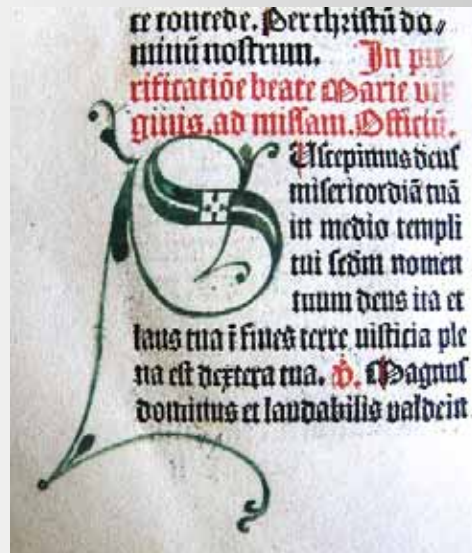 ce concede. Per christū do⸗
minū nostrum. In pu⸗
rificatiōe beate Marie vir
ginis. ad missam. Officiū.
SUscepimus deus
misericordiā tuā
in medio templi
tui secdm nomen
tuum deus ita et
laus tua ī fines terre iusticia ple
na est dextera tua. V. Magnus
dominus et laudabilis valde in